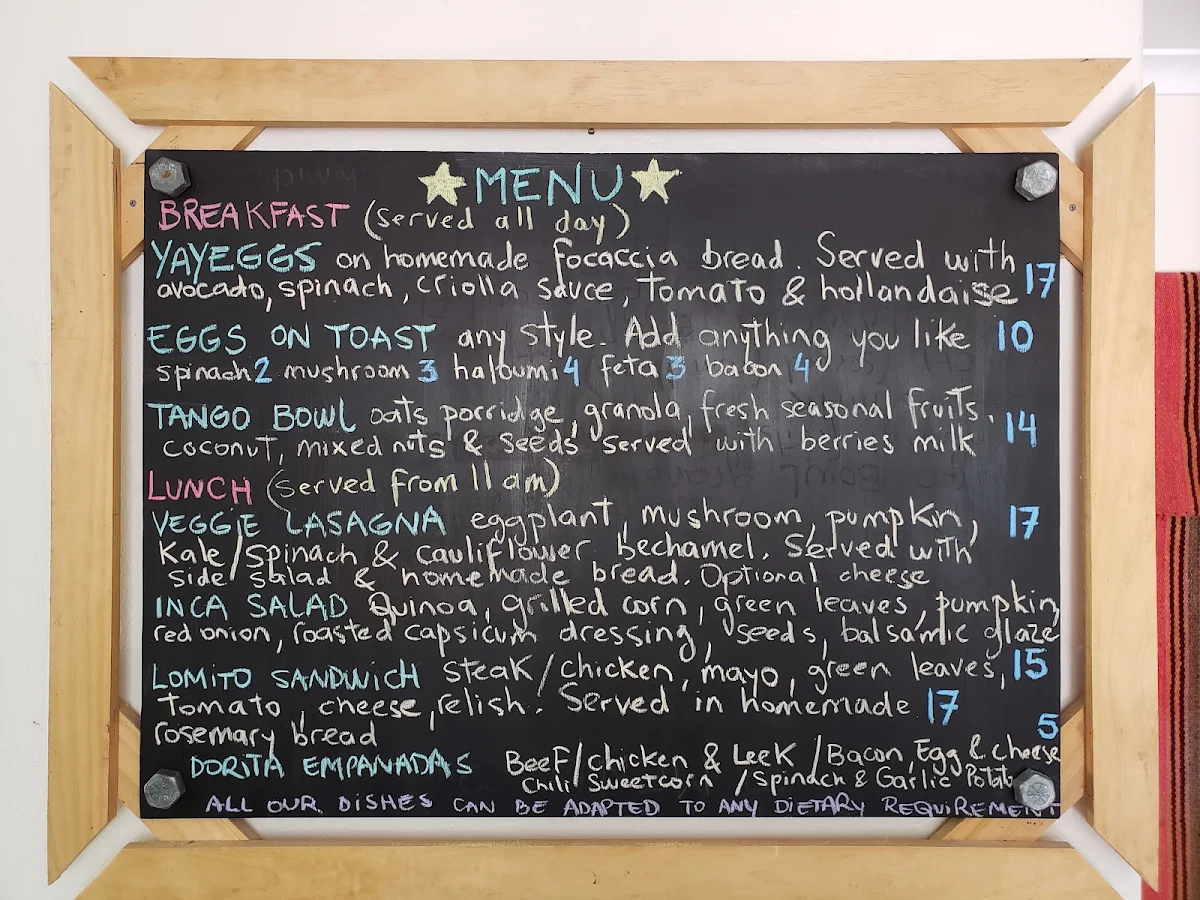 MENU
BREAKFAST (served all day)
YAYEGGS on homemade focaccia bread. Served with
avocado, spinach, criolla sauce, tomato & hollandaise 17
EGGS ON TOAST any style. Add anything you like 10
spinach 2 mushroom 3 haloumi 4 feta 3 bacon 4
TANGO BOWL oats porridge, granola, fresh seasonal fruits,
coconut, mixed nuts & seeds served with berries milk 14
LUNCH (served from 11 am)
VEGGIE LASAGNA eggplant, mushroom, pumpkin, 17
Kale/spinach & cauliflower bechamel. Served with
side salad & homemade bread. Optional cheese
INCA SALAD Quinoa, grilled corn, green leaves, pumpkin,
red onion, roasted capsicum dressing, seeds, balsamic glaze
LOMITO SANDWICH steak/chicken, mayo, green leaves, 15
Tomato, cheese, relish. Served in homemade 17
rosemary bread 5
DORITA EMPANADAS Beef/chicken & Leek/Bacon, Egg & cheese
Chili Sweetcorn /Spinach & Garlic Potato
ALL OUR DISHES CAN BE ADAPTED TO ANY DIETARY REQUIREMENT